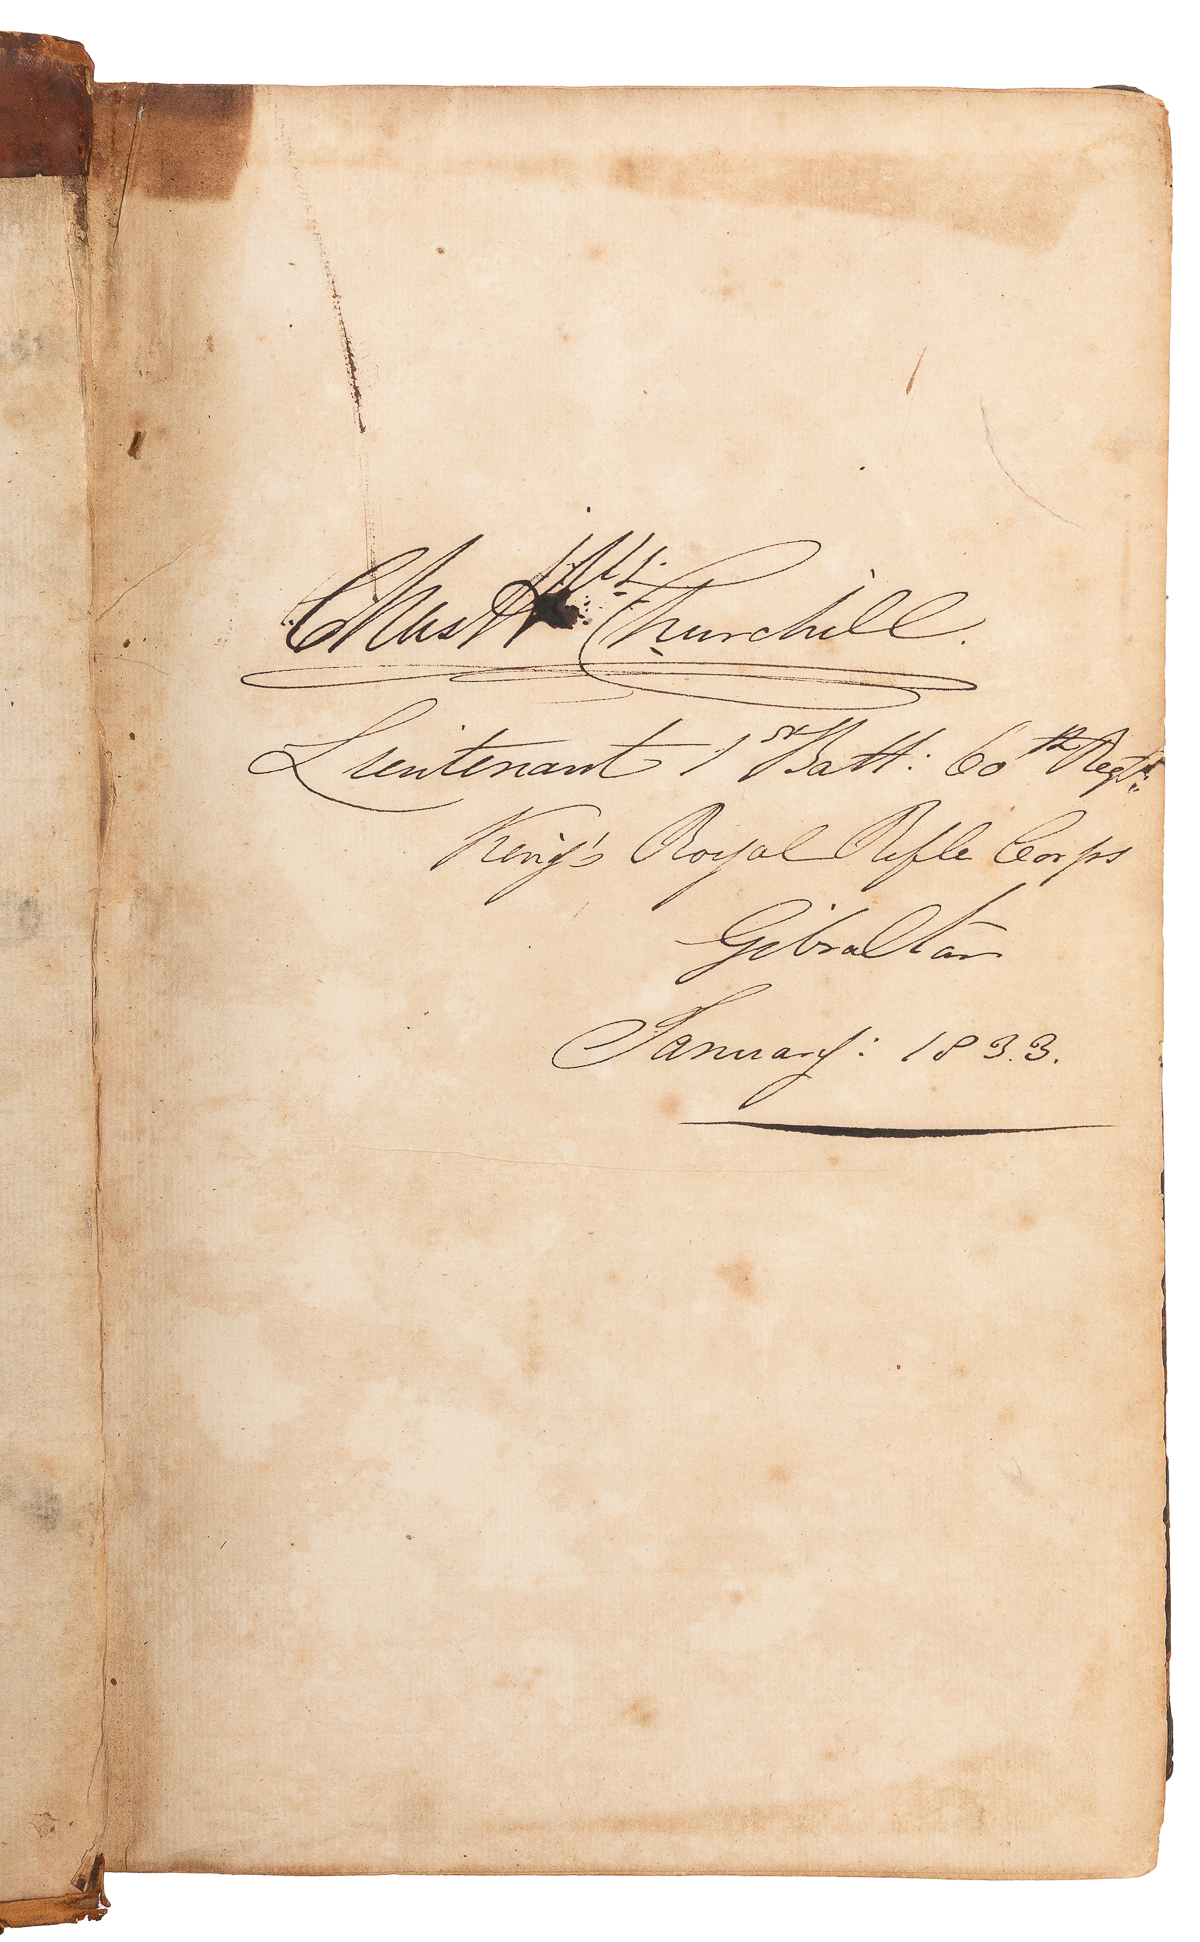 Chas H Churchill.
Lieutenant 1st Batt: 60th Regt:
King's Royal Rifle Corps
Gibraltar
January: 1833.